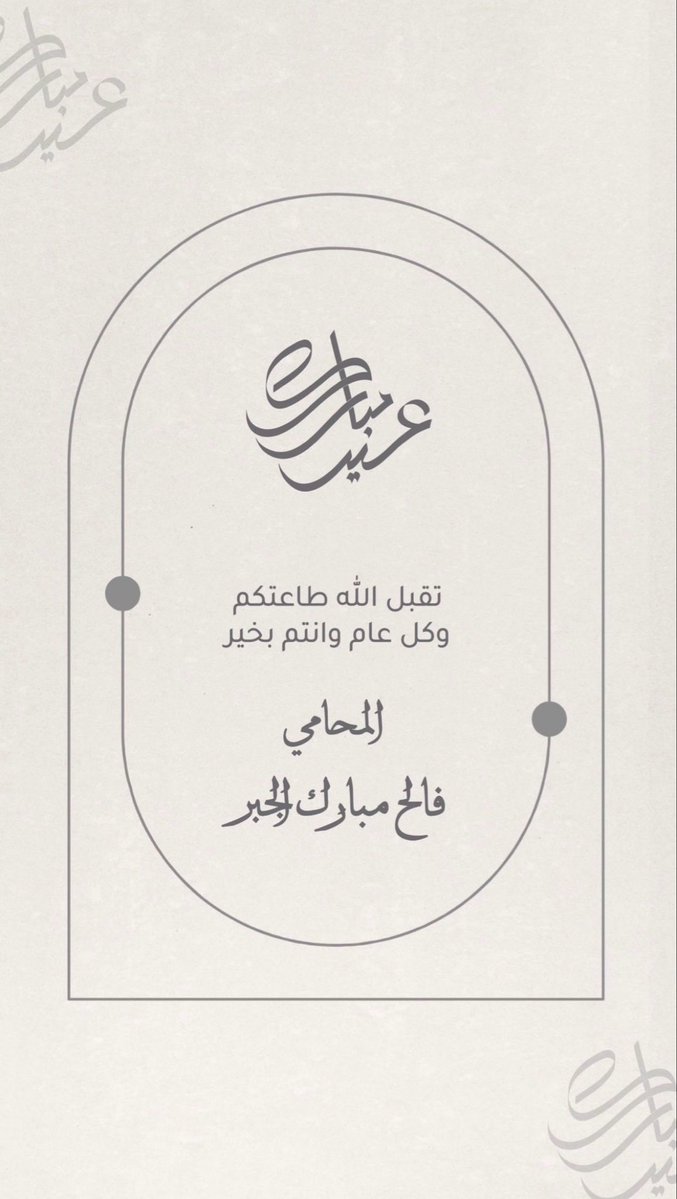 عيد مبارك
عيد مبارك
تقبل الله طاعتكم
وكل عام وانتم بخير
المحامي
فالح مبارك الجبر
عيد مبارك